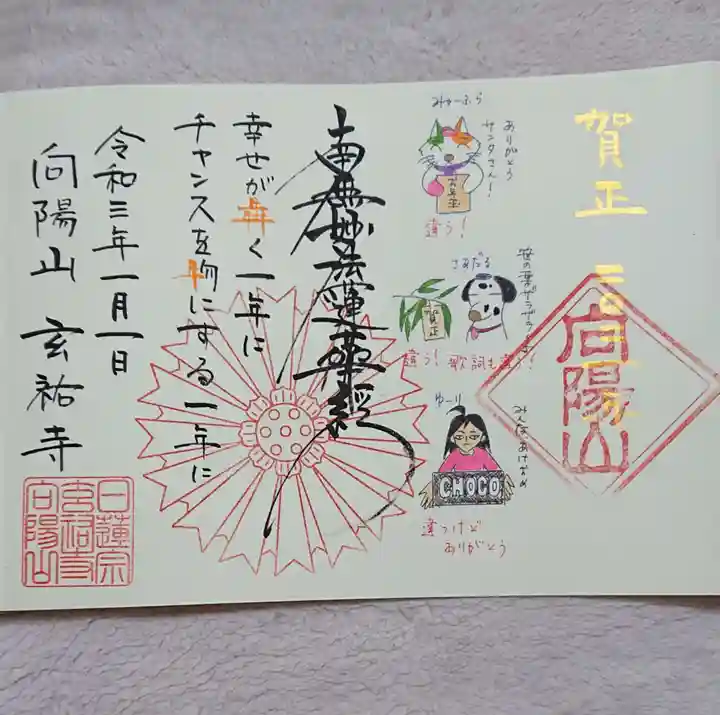 賀正
向陽山
ありがとう
サンタさん!
お年玉
違う!
賀正
違う! 歌詞も違う!
みんなあけおめ
ゆーり
CHOCO
違うけど
ありがとう
南無妙法蓮華經
幸せが犇く一年に
チャンスを物にする一年に
令和三年一月一日
向陽山 玄祐寺
日蓮宗
玄祐寺
向陽山